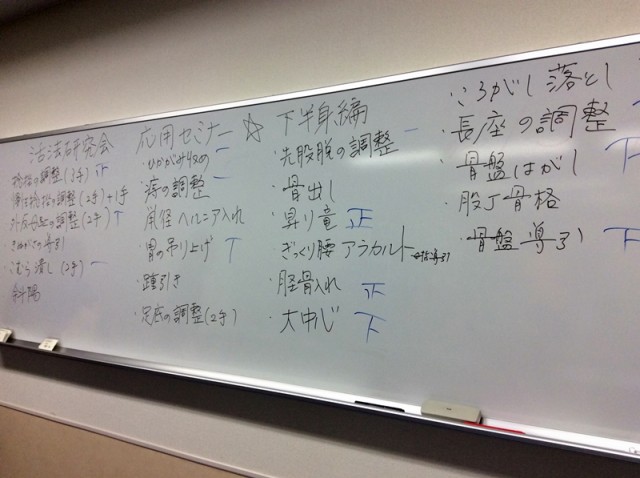 活法研究会 応用セミナー ☆ 下半身編
拇指の調整(2手) 正
拇指の調整(2手)+1手
外反母趾の調整(2手) T
導引
こむら潰し(2手) 一
斜陽
・ひかがみ収め 一
・痔の調整 一
・鼠径ヘルニア入れ
・胃の吊り上げ T
・踵引き
・足底の調整(2手)
・先股脱の調整 一
・骨出し
・昇り竜 正
・ぎっくり腰 アラカルト
・胫骨入れ 正
・大中じ 下
・ころがし落とし
・長座の調整
・骨盤はがし 下
・股丁骨格
・骨盤導引 下